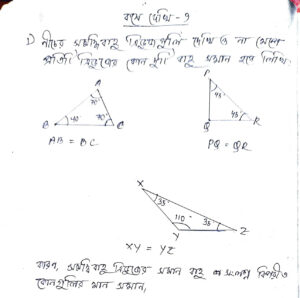 কষে দেখি - 9
1) নীচের সমদ্বিবাহু ত্রিভুজগুলি দেখি ও না মেপে
প্রতিটি ত্রিভুজের কোন দুটি বাহু সমান হবে লিখি।
A
70°
B 40° 70° C
AB = BC
P
45°
45°
Q R
PQ = QR
X
35°
110° 35°
Y Z
XY = YZ
কারণ, সমদ্বিবাহু ত্রিভুজের সমান বাহু সংলগ্ন বিপরীত
কোনগুলির মান সমান,